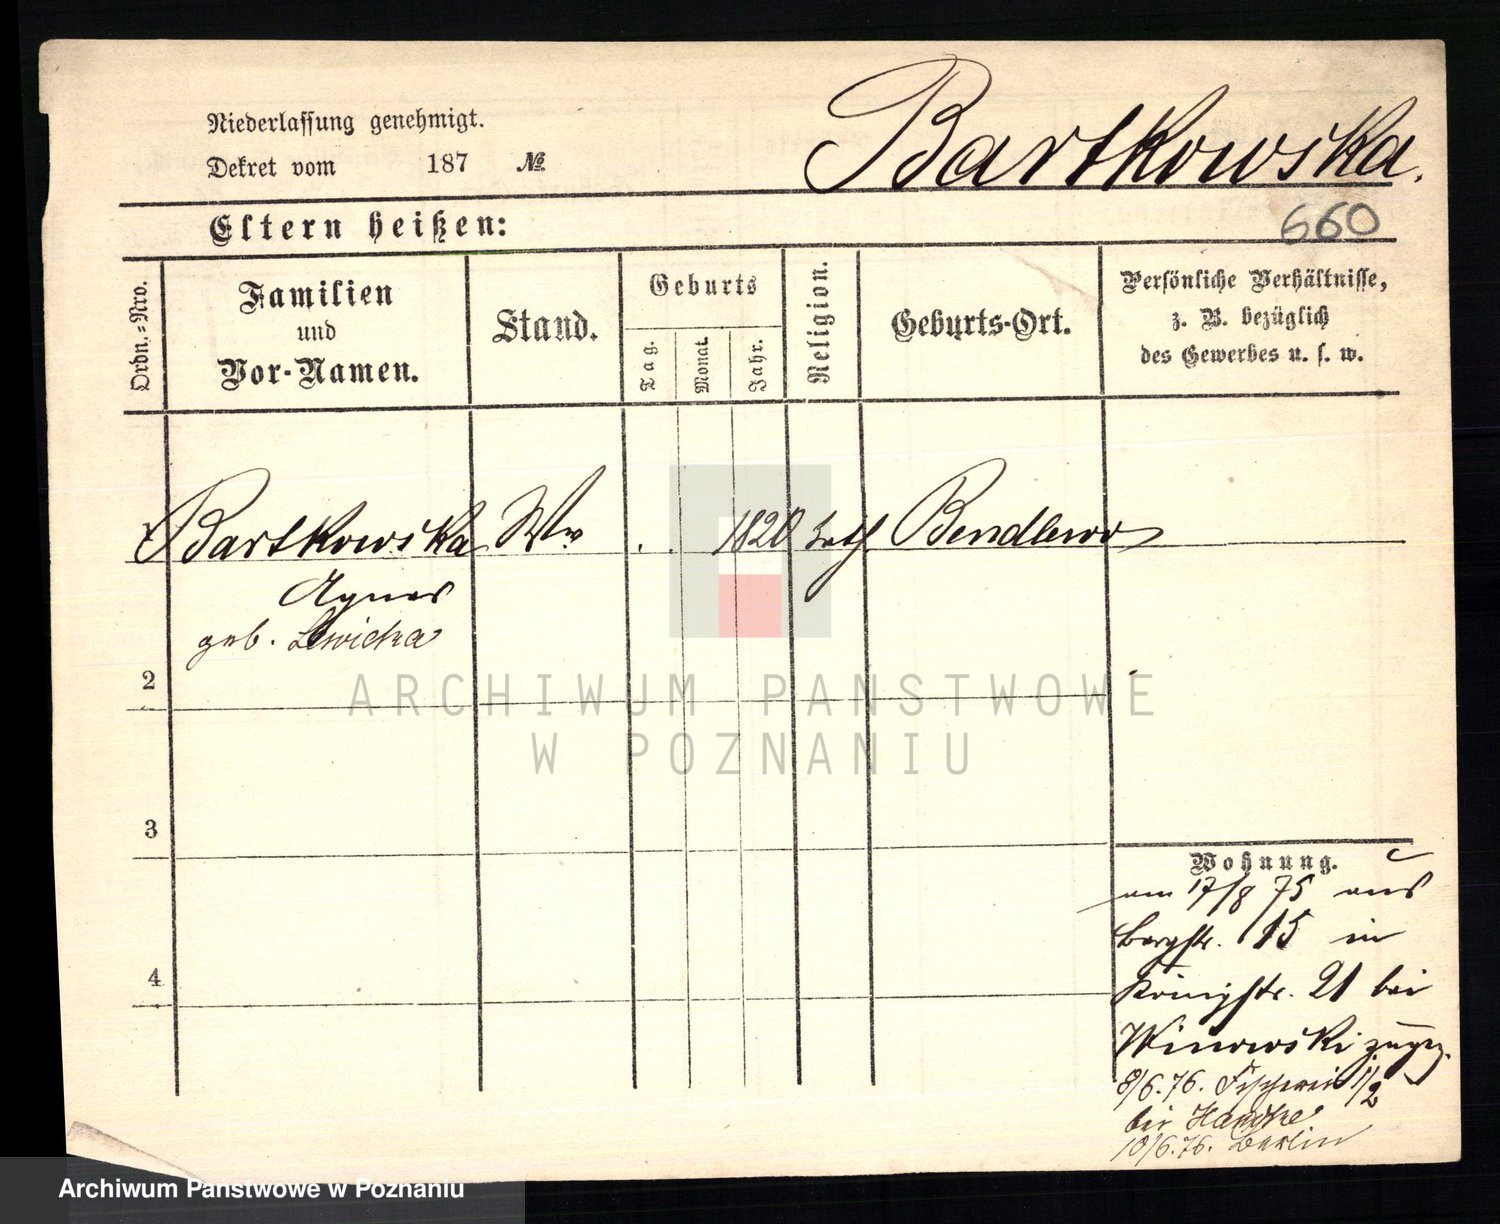 Niederlassung genehmigt.
Dekret vom 187 №
Bartkowska.
660
Eltern heißen:
Ordn.=Nro.
Familien
und
Vor-Namen.
Stand.
Geburts
Tag.
Monat.
Jahr.
Religion.
Geburts-Ort.
Persönliche Verhältnisse,
z. B. bezüglich
des Gewerbes u. s. w.
1 Bartkowska Ww . . 1820 kath Bendlewo
Agnes
geb. Lewicka
2
3
4
Wohnung.
am 17/8 75 aus
Bergstr. 15 in
Königstr. 21 bei
Winowski zugez.
8/6.76. Fischerei 1/2
bei
10/6.76. Berlin
ARCHIWUM PAŃSTWOWE
W POZNANIU
Archiwum Państwowe w Poznaniu